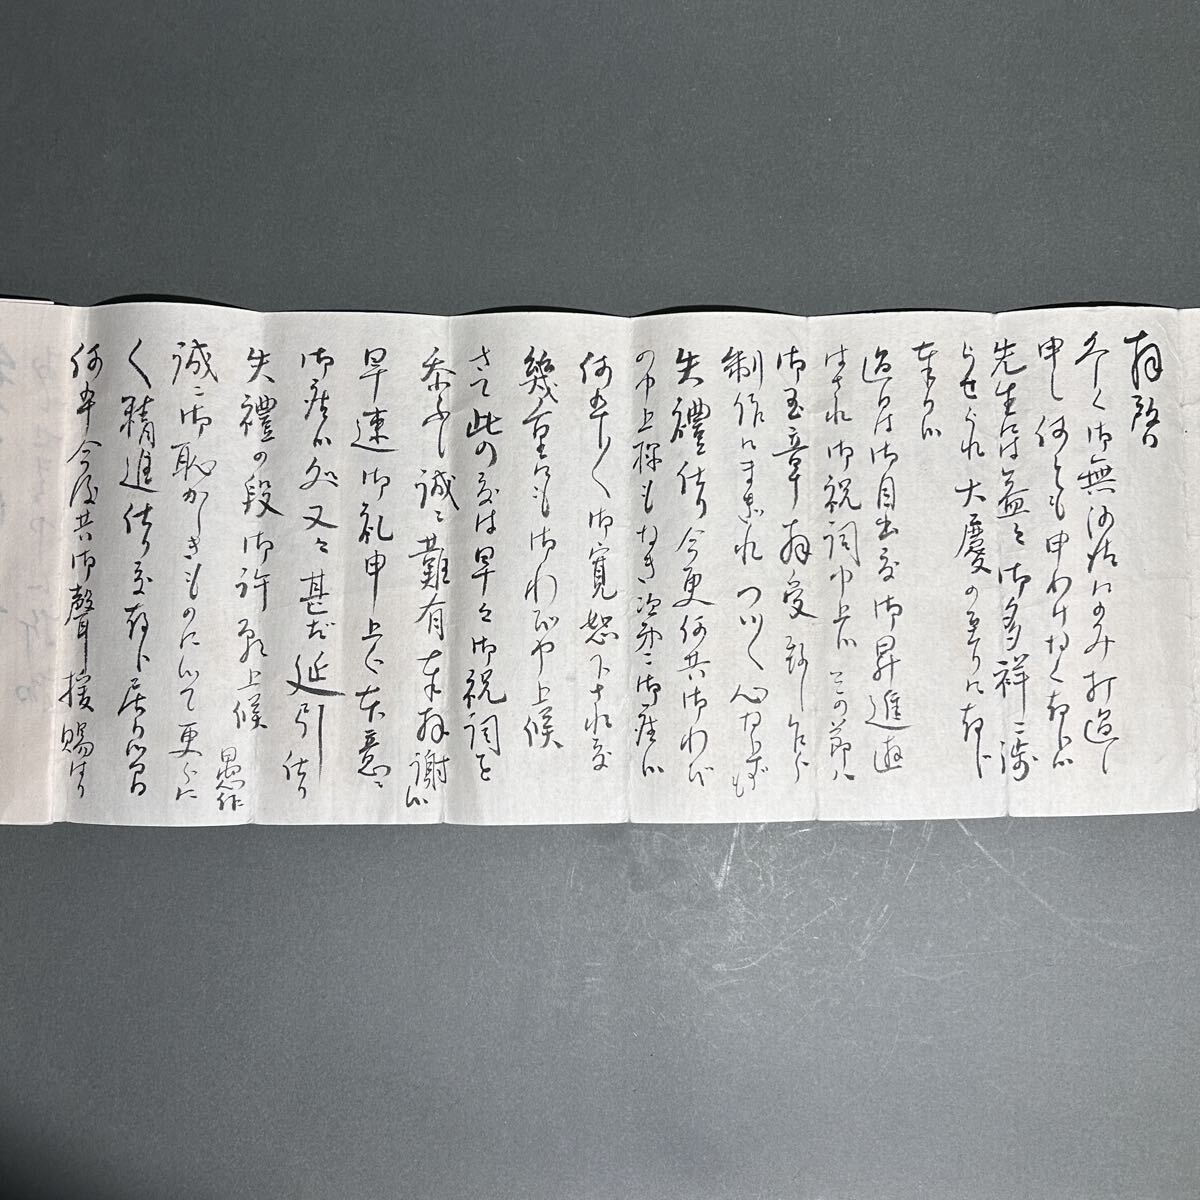 拝啓
久々御無沙汰にのみ打過し
申し何とも申わけなく存上候
先生には益々御多祥に渉
らせられ大慶の至りに存じ
奉り候
過日は御目出度御昇進遊
ばされ御祝詞申上候 この節ハ
御玉章拝受致し乍ら
制作にまぎれつい〱心ならずも
失禮仕り今更何共御わび
の申上様もなき次第に御座候
何卒〱御寛恕下され度
幾重にも御わび申上候
さて此の度は早々御祝詞を
忝ふし誠に難有奉拝謝候
早速御礼申上ぐ本意に
御座候処又々甚だ延引仕り
失禮の段御許し願上候
愚作
誠に御恥かしきものにて更らに
〱精進仕り度存じ居り候間
何卒今後共御聲援賜はり